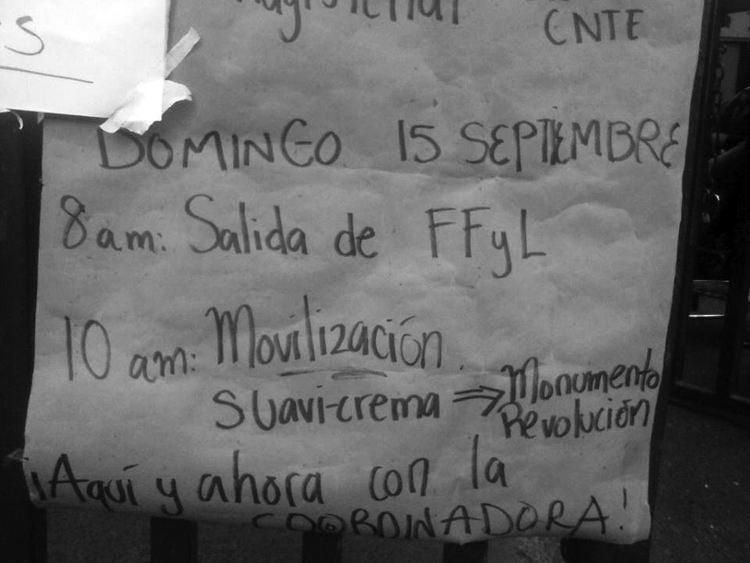 s
Magisterial
CNTE
DOMINGO 15 SEPTIEMBRE
8am: Salida de FFyL
10 am: Movilización.
Suavi-crema ⇒ Monumento
Revolución
¡Aquí y ahora con la
COORDINADORA!